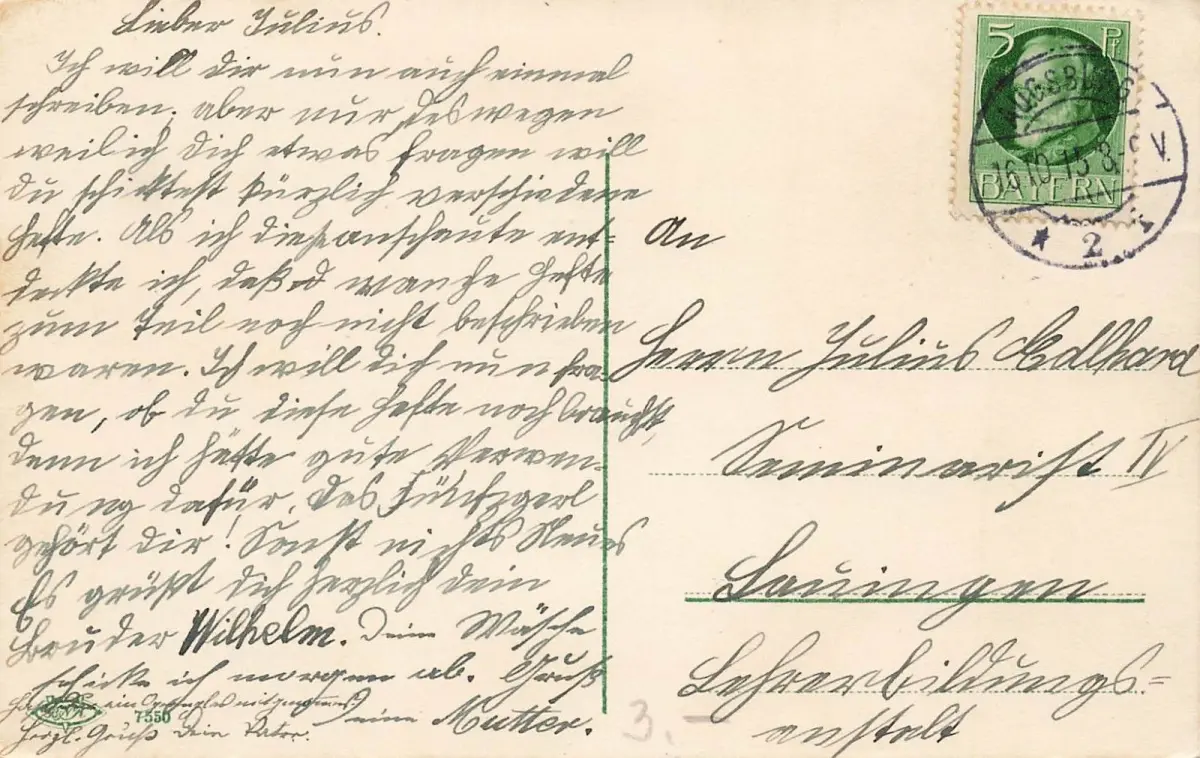 Lieber Julius.
Ich will dir nun auch einmal
schreiben, aber nur deswegen
weil ich dich etwas fragen will
Du schicktest kürzlich verschiedene
Hefte. Als ich diese anschaute ent-
deckte ich, daß manche Hefte
zum Teil noch nicht beschrieben
waren. Ich will dich nun fra-
gen, ob du diese Hefte noch brauchst,
denn ich hätte gute Verwen-
dung dafür. Das Fünfzgerl
gehört dir! Sonst nichts Neues
Es grüßt dich herzlich dein
Bruder Wilhelm. Deine Wäsche
schicke ich morgen ab. Gruß
deine Mutter.
7550
Herzl. Gruß Dein Vater.
5 Pf
BAYERN
AUGSBURG
16.10.15.8-9 V.
* 2
An
Herrn Julius
Seminarist IV
Lauingen
Lehrerbildungs=
anstalt
3.-